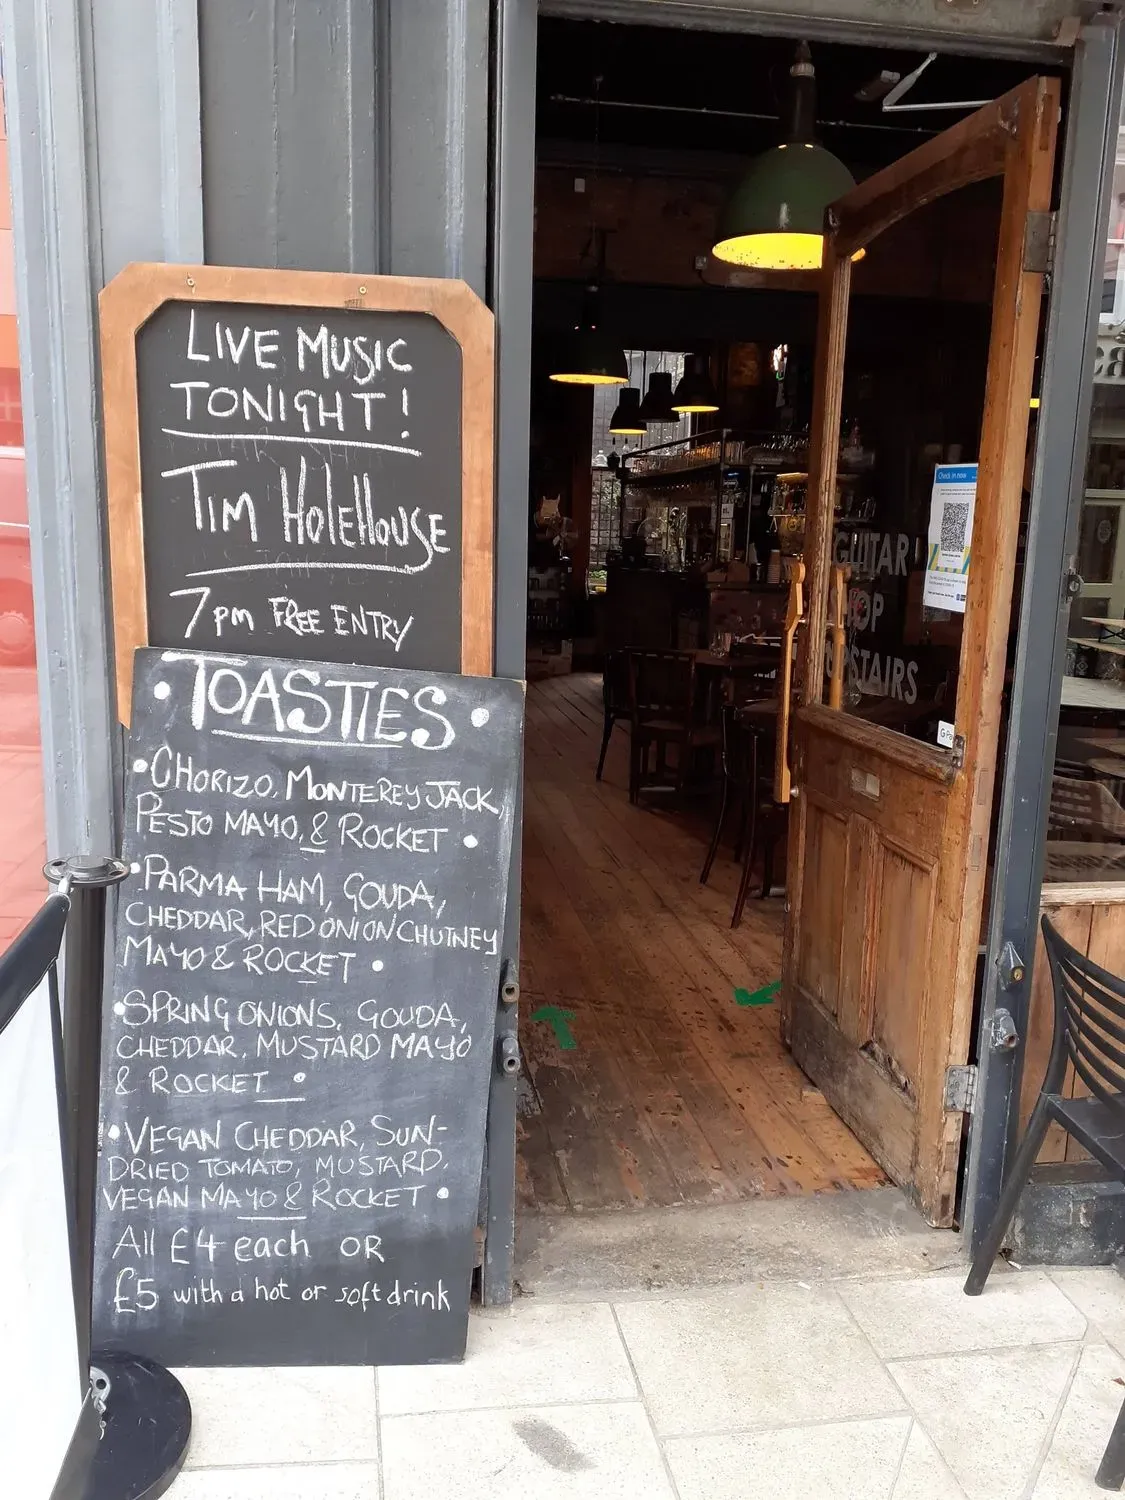 LIVE MUSIC
TONIGHT!
TIM HOLEHOUSE
7pm FREE ENTRY
• TOASTIES •
• CHORIZO, MONTEREY JACK,
PESTO MAYO, & ROCKET •
• PARMA HAM, GOUDA,
CHEDDAR, RED ONION CHUTNEY
MAYO & ROCKET •
• SPRING ONIONS, GOUDA,
CHEDDAR, MUSTARD MAYO
& ROCKET •
• VEGAN CHEDDAR, SUN-
DRIED TOMATO, MUSTARD,
VEGAN MAYO & ROCKET •
All £4 each OR
£5 with a hot or soft drink
Check in now
GUITAR
SHOP
UPSTAIRS
G Pay